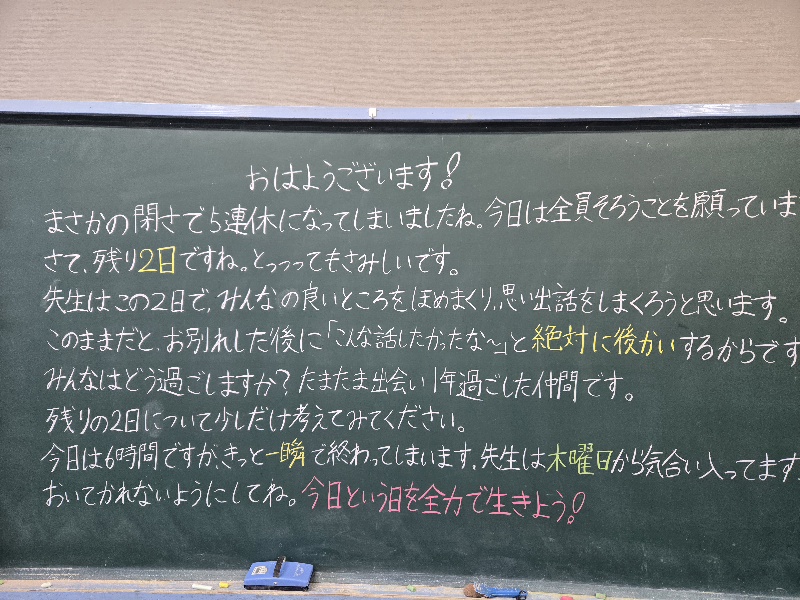 おはようございます!
まさかの閉さで5連休になってしまいましたね。今日は全員そろうことを願っていま
さて、残り2日ですね。とっっってもさみしいです。
先生はこの2日で、みんなの良いところをほめまくり、思い出話をしまくろうと思います。
このままだと、お別れした後に「こんな話したかったな〜」と絶対に後かいするからです
みんなはどう過ごしますか?たまたま出会い1年過ごした仲間です。
残りの2日について少しだけ考えてみてください。
今日は6時間ですが、きっと一瞬で終わってしまいます。先生は木曜日から気合い入ってます。
おいてかれないようにしてね。今日という日を全力で生きよう!